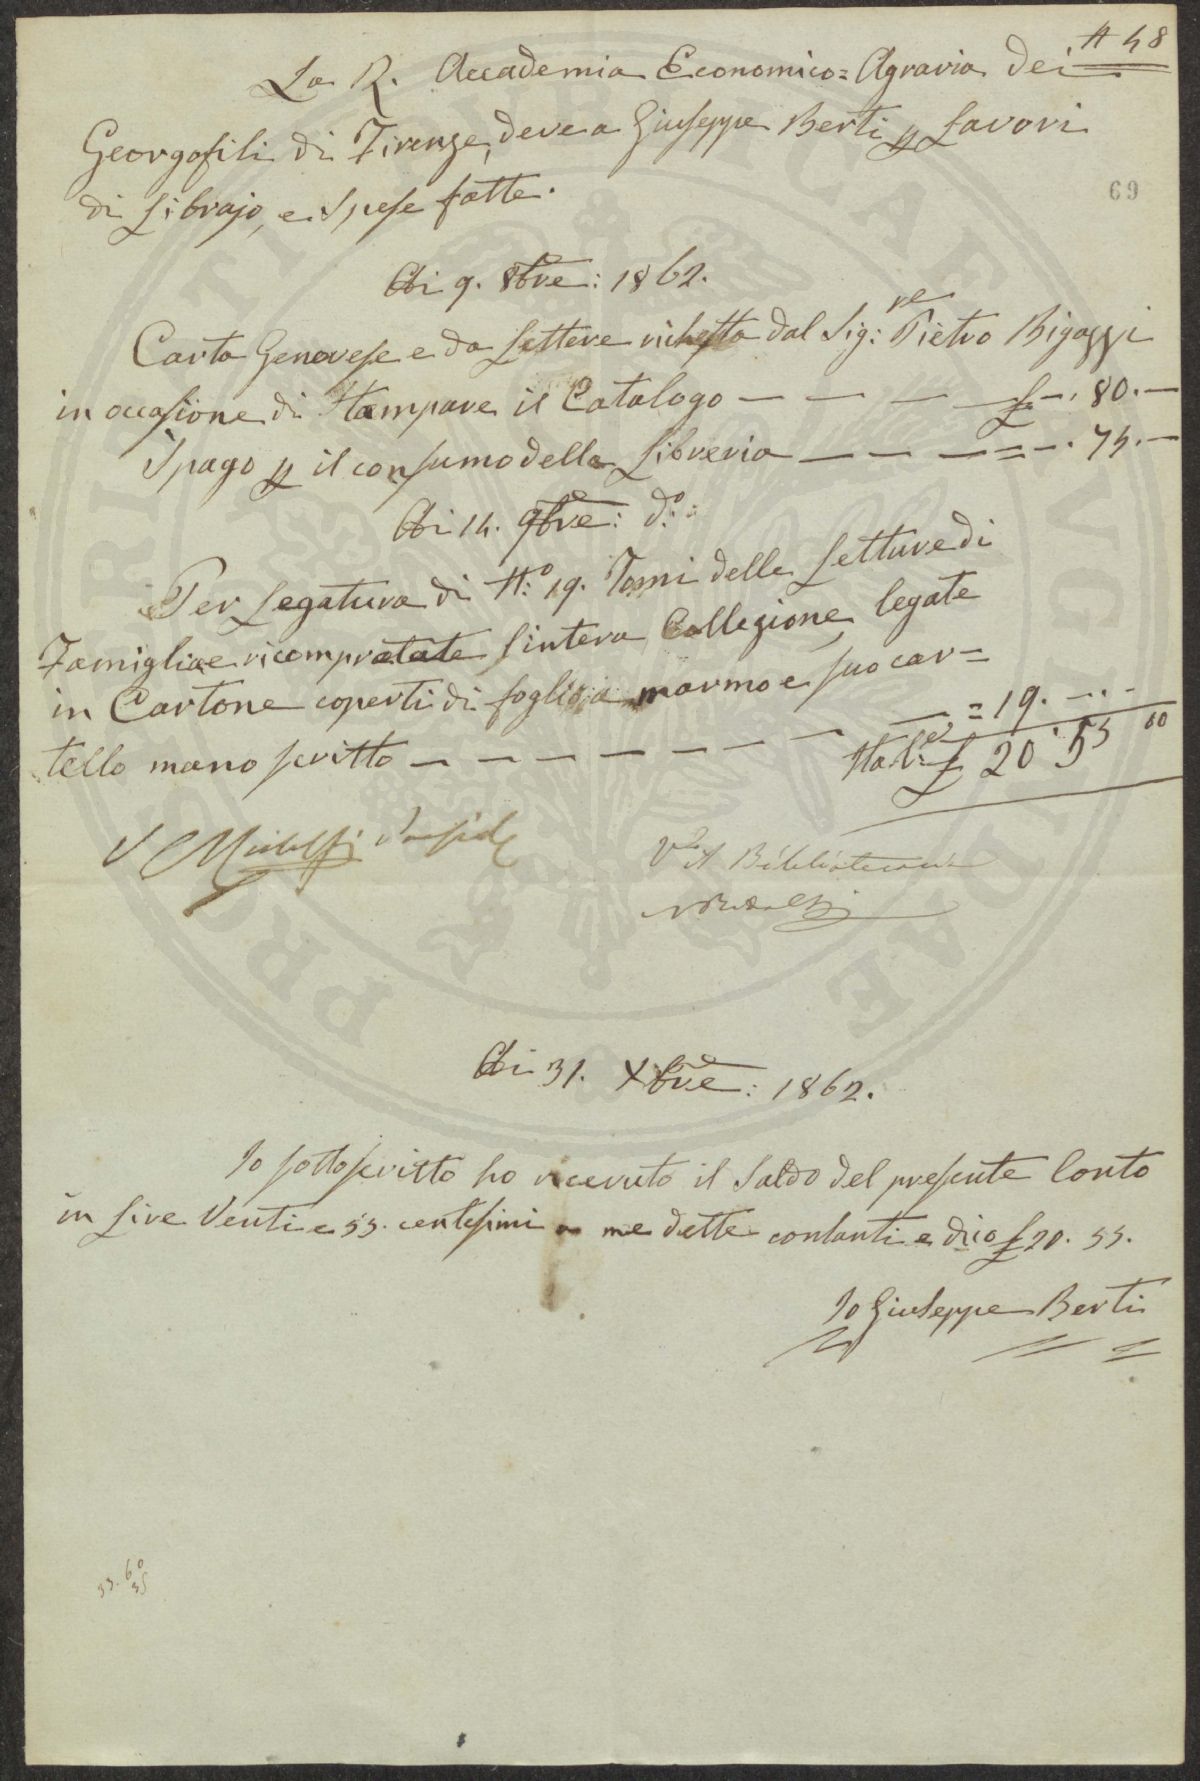 N 48
La R. Accademia Economico=Agraria dei
Georgofili di Firenze, deve a Giuseppe Berti p Lavori
di Librajo, e Spese fatte.
69
Adi 9. 8bre: 1862.
Carta Genovese e da Lettere richiesta dal Sig:re Pietro Bigazzi
in occasione di Stampare il Catalogo — — — — £ —. 80. —
Spago p il consumo della Libreria — — — = —. 75. —
Adi 14. 9bre: do:
Per Legatura di No: 19. Tomi delle Letture di
Famiglia e ricompratate l'intera Collezione, legate
in Cartone coperti di foglio a marmo e suo car=
tello mano scritto — — — — — — — — = 19. — ..
Ital:e £ 20. 55 60
V Preside
Vo Il Bibliotecario
Adi 31. Xbre: 1862.
Io sottoscritto ho ricevuto il Saldo del presente Conto
in Lire Venti e 55. centesimi a me dette contanti e dico £ 20. 55.
Io Giuseppe Berti
PRO